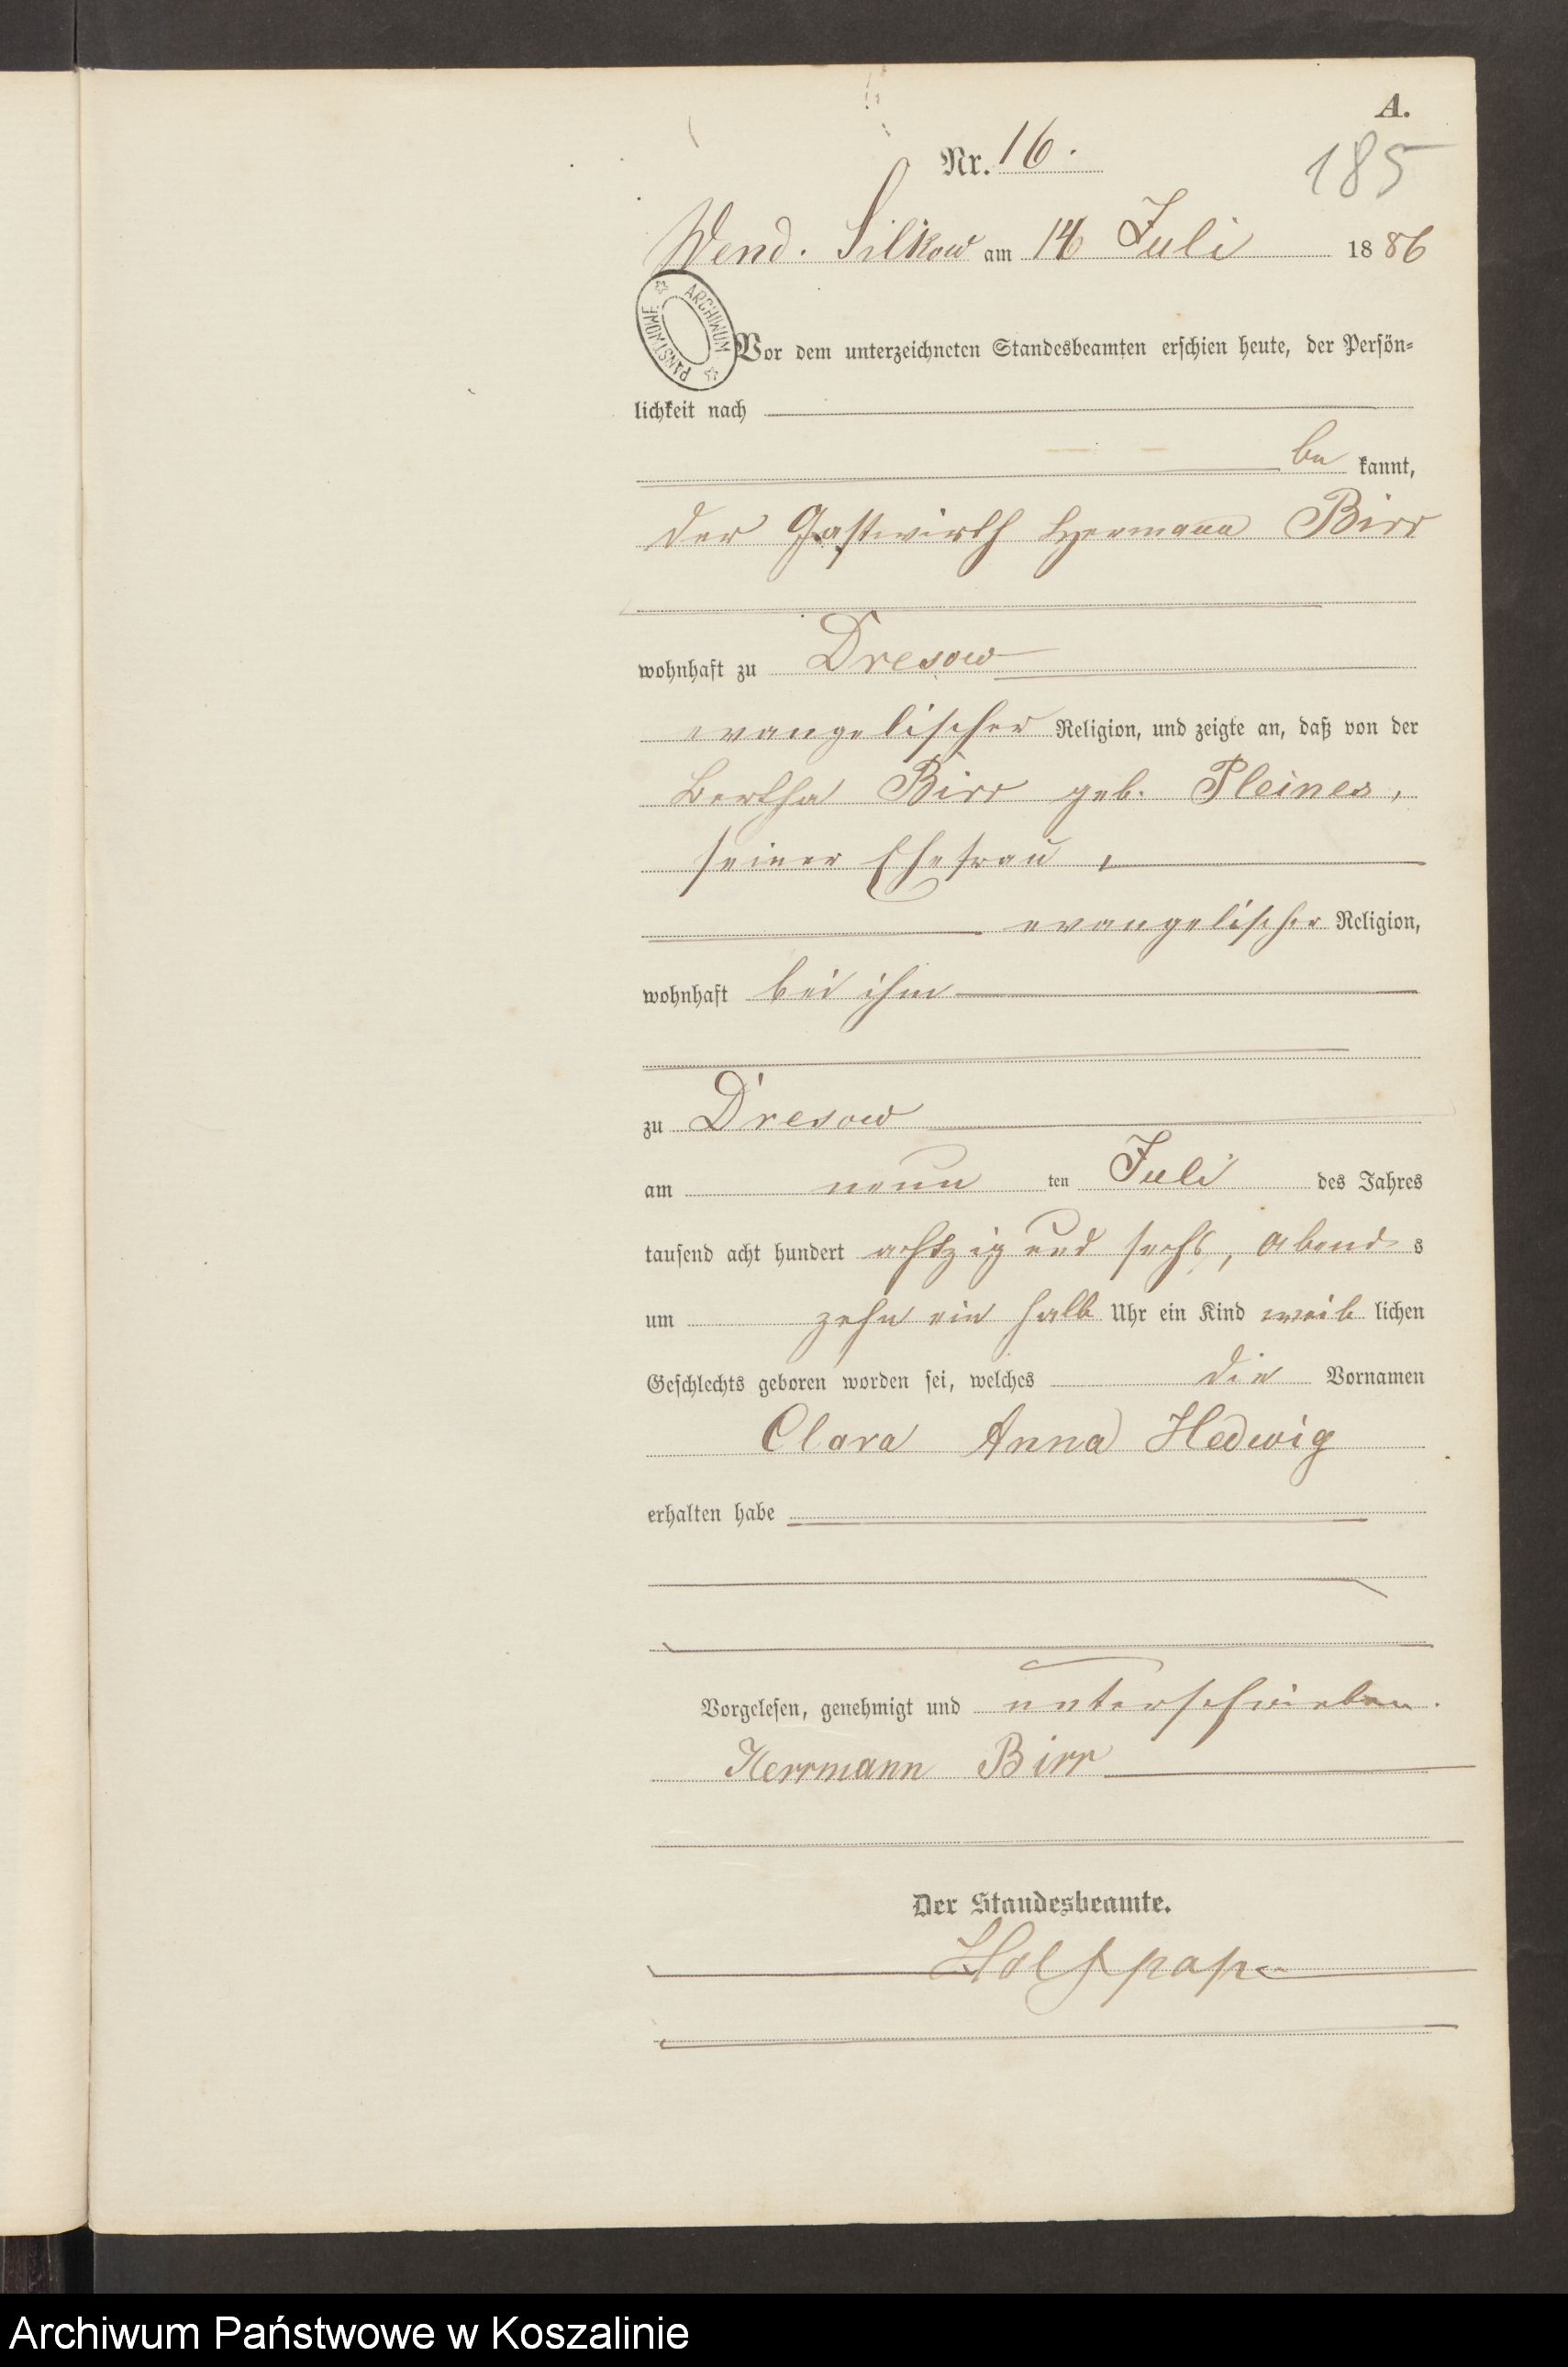 A.
Nr. 16.
185
Wend. Silkow am 14 Juli 1886
ARCHIWUM PAŃSTWOWE
Vor dem unterzeichneten Standesbeamten erschien heute, der Persön-
lichkeit nach
be kannt,
der Gastwirth Hermann Birr
wohnhaft zu Dresow
evangelischer Religion, und zeigte an, daß von der
Bertha Birr geb. Pleines,
seiner Ehefrau,
evangelischer Religion,
wohnhaft bei ihm
zu Dresow
am neun ten Juli des Jahres
tausend acht hundert achtzig und sechs, Abend s
um zehn ein halb Uhr ein Kind weib lichen
Geschlechts geboren worden sei, welches die Vornamen
Clara Anna Hedwig
erhalten habe
Vorgelesen, genehmigt und unterschrieben.
Herrmann Birr
Der Standesbeamte.
Archiwum Państwowe w Koszalinie